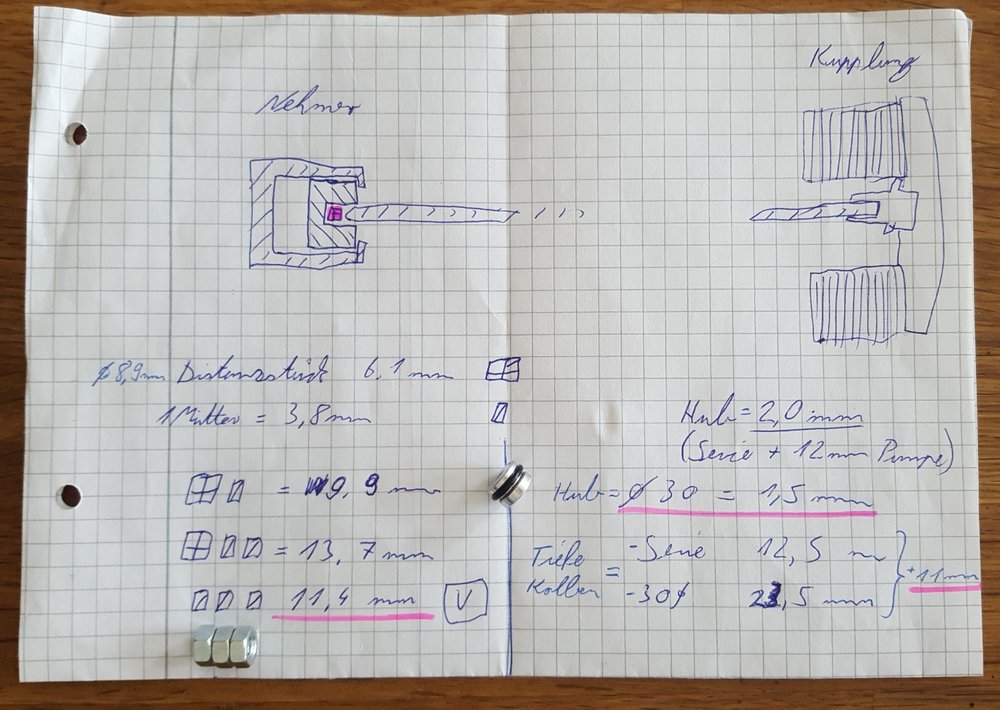 Kupplung
Nehmer
ø8,9mm Distanzstück 6,1 mm
1 Mutter = 3,8mm
= 9,9 mm
= 13,7mm
11,4 mm V
Hub = 2,0 mm
(Serie + 12mm Pumpe)
Hub = ø 30 = 1,5 mm
Tiefe Kolben =
-Serie 12,5 mm
-30ø 23,5 mm
+11mm